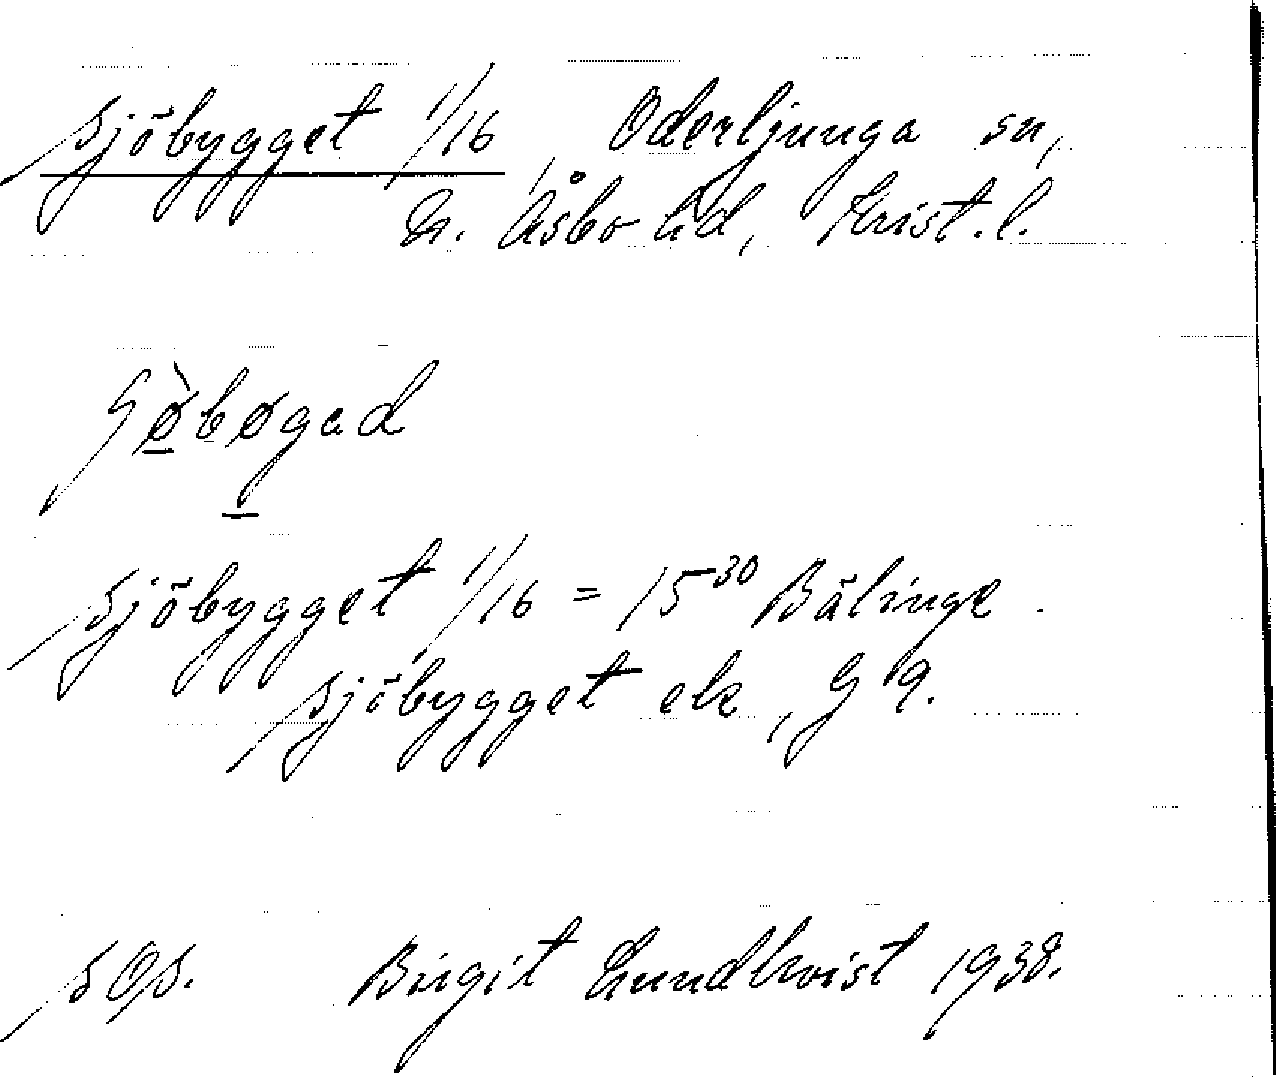 sjöbygget 1/16, Oderljunga sn,
N. Åsbo hd, Krist. l.
sjöbygget 1/16 = 15³⁰ Bälinge.
sjöbygget ek, G 19.
s Os. Birgit Lundkvist 1938.